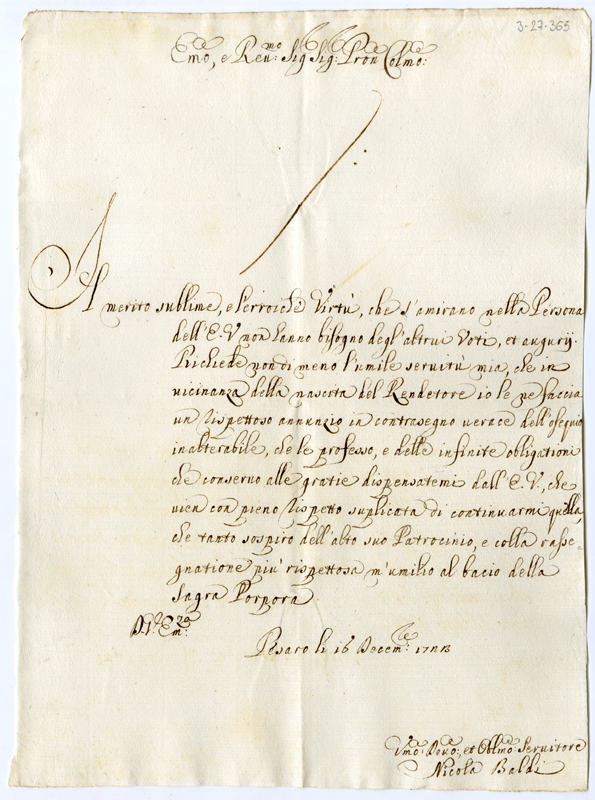 3-27-365
Em.o, e Reu:mo Sig Sig: Pron Colmo:
Al merito sublime, e l'erroiche Virtù, che s'amirano nella Persona
dell'E.V non hanno bisogno degl'altrui Voti, et augurij.
Richiede non di meno l'umile seruitù mia, che in
uicinanza della nascita del Rendetore io le ne faccia
un rispettoso annunzio in contrasegno uerace dell'osequio
inalterabile, che le professo, e delle infinite obligationi
che conseruo alle gratie dispensatemi dall'E.V., che
uien con pieno rispetto suplicata di continuarmi quella,
che tanto sospiro dell'alto suo Patrocinio, e colla rasse-
gnatione più rispettosa m'umilio al bacio della
Sagra Porpora.
D.V. Em:za
Pesaro li 16 Decem:bre
Vmo: Deuo: et Oblmo: Seruitore
Nicola Baldi